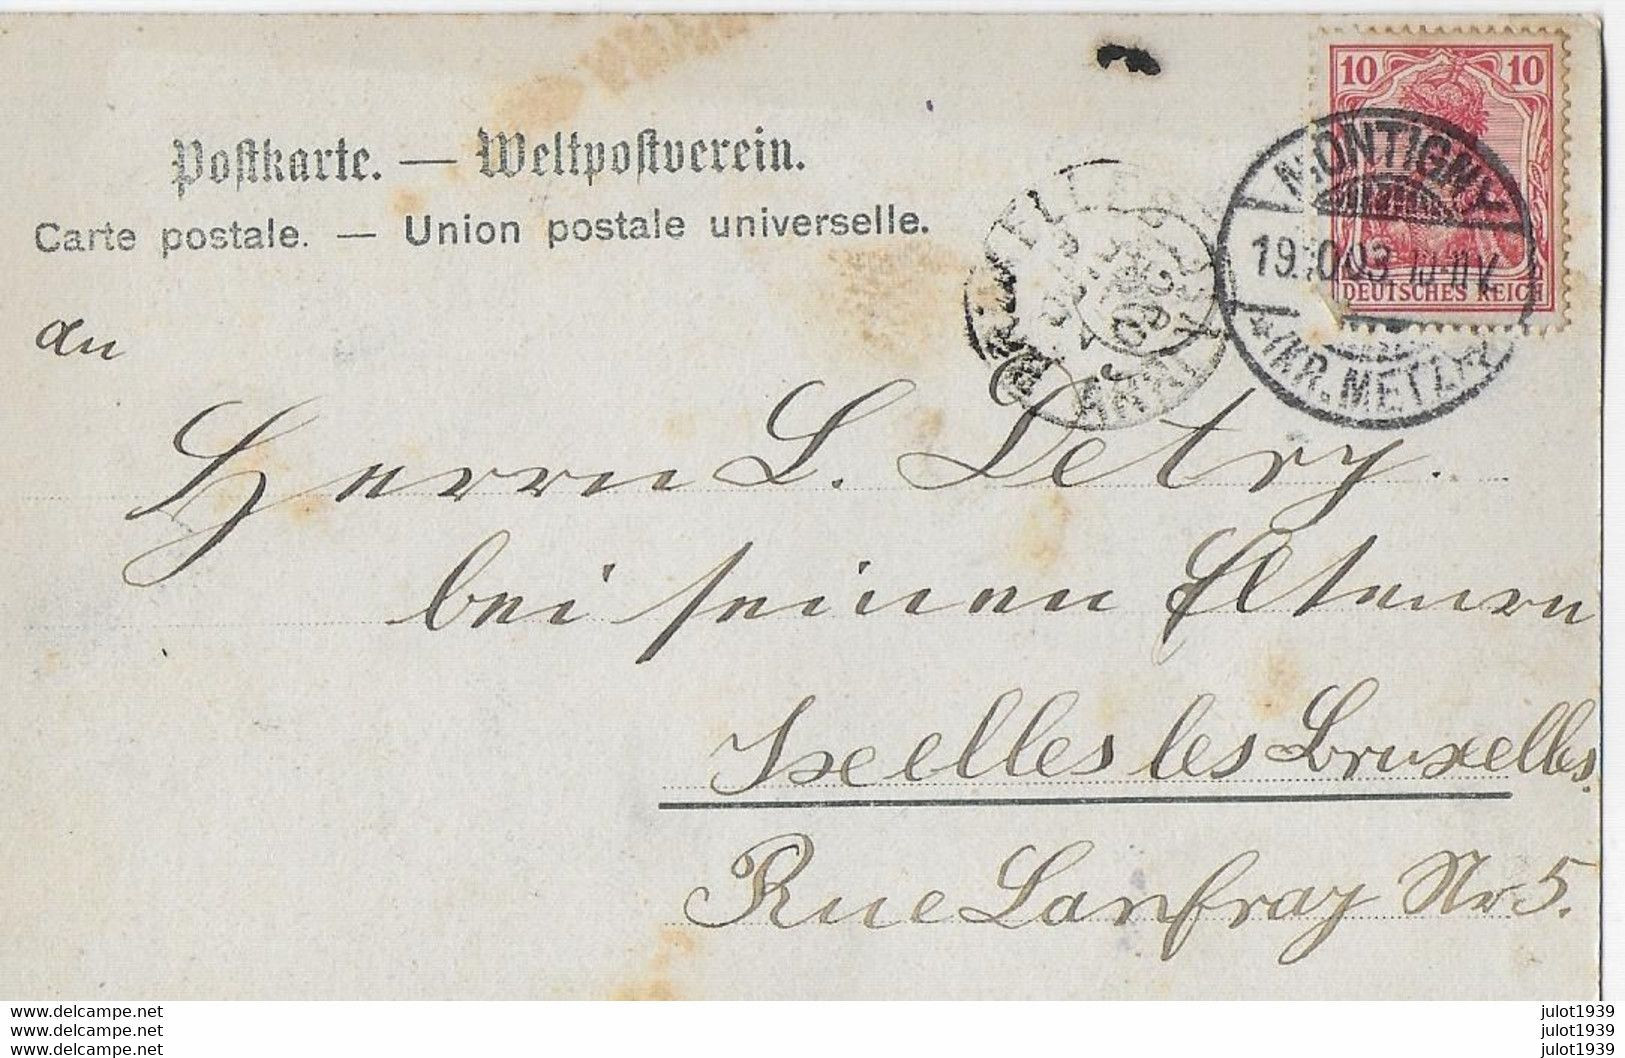 Postkarte. — Weltpostverein.
Carte postale. — Union postale universelle.
10 10
DEUTSCHES REICH
MONTIGNY
(KR. METZ)
BRUXELLES
an
Herrn L. Detry.
bei seinen Eltenrn
Ixelles les Bruxelles.
Rue Lanfray Nr 5.
www.delcampe.net
www.delcampe.net
www.delcampe.net
julot1939
julot1939
julot1939